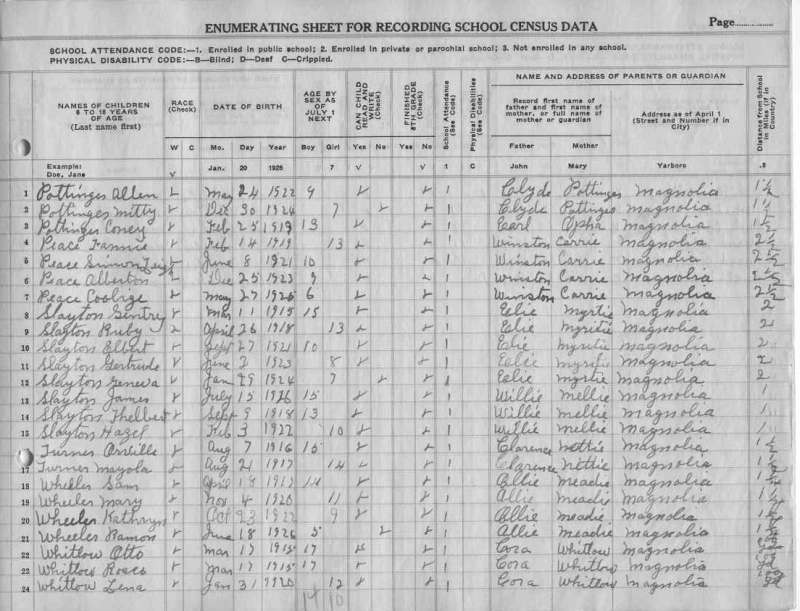 ENUMERATING SHEET FOR RECORDING SCHOOL CENSUS DATA
Page
SCHOOL ATTENDANCE CODE:—1. Enrolled in public school; 2. Enrolled in private or parochial school; 3. Not enrolled in any school.
PHYSICAL DISABILITY CODE:—B—Blind; D—Deaf C—Crippled.
NAMES OF CHILDREN 6 TO 18 YEARS OF AGE (Last name first)
RACE (Check)
W C
DATE OF BIRTH
Mo. Day Year
AGE BY SEX AS OF JULY 1 NEXT
Boy Girl
CAN CHILD READ AND WRITE (Check)
Yes No
FINISHED 8TH GRADE (Check)
Yes No
School Attendance (See Code)
Physical Disabilities (See Code)
NAME AND ADDRESS OF PARENTS OR GUARDIAN
Record first name of father and first name of mother, or full name of mother or guardian
Father Mother
Address as of April 1 (Street and Number if in City)
Distance from School in Miles (if in Country)
Example: Doe, Jane V Jan. 20 1925 7 V V 1 C John Mary Yarboro .5
1 Pottinger Allen May 24 1922 9 1 Clyde Pottinger Magnolia 1 1/2
2 Pottinger Mitty Dec 30 1924 7 1 Clyde Pottinger Magnolia 1 1/2
3 Pottinger Coney Feb 25 1919 13 1 Earl Opha Magnolia 1 1/2
4 Peace Fannie Feb 14 1919 13 1 Winston Carrie Magnolia 2 1/2
5 Peace Simon June 8 1921 10 1 Winston Carrie Magnolia 2 1/2
6 Peace Dec 25 1923 9 1 Winston Carrie Magnolia 2 1/2
7 Peace May 27 1925 6 1 Winston Carrie Magnolia 2 1/2
8 Slayton Gentry 11 1915 15 1 Magnolia 2
9 Slayton Ruby April 26 1918 13 1 Magnolia 2
10 Slayton Elbert Sept 27 1921 10 1 Magnolia 2
11 Slayton Gertrude June 2 1923 8 1 Magnolia 2
12 Slayton Geneva Jan 29 1924 7 1 Magnolia 2
13 Slayton James July 15 15 1 Willie Mellie Magnolia 1
14 Slayton Thelbert Sept 9 1918 13 1 Willie Mellie Magnolia 1
15 Slayton Hazel Feb 3 1922 10 1 Willie Mellie Magnolia 1
Turner Orville Aug 7 1916 15 1 Clarence Nettie Magnolia 1 1/2
17 Turner Mayola Aug 21 1917 14 1 Clarence Nettie Magnolia 1 1/2
18 Wheeler Sam April 14 1 Allie Meadie Magnolia 1 1/2
19 Wheeler Mary Nov 4 1920 11 1 Allie Meadie Magnolia 1 1/2
20 Wheeler Kathryn Oct 23 1922 9 1 Allie Meadie Magnolia 1 1/2
21 Wheeler Ramon June 18 1926 5 1 Allie Meadie Magnolia 1 1/2
22 Whitlow Otto Mar 17 1915 17 1 Cora Whitlow Magnolia
23 Whitlow Mar 17 1915 17 1 Cora Whitlow Magnolia
24 Whitlow Lena Jan 31 1920 12 1 Cora Whitlow Magnolia
14 10